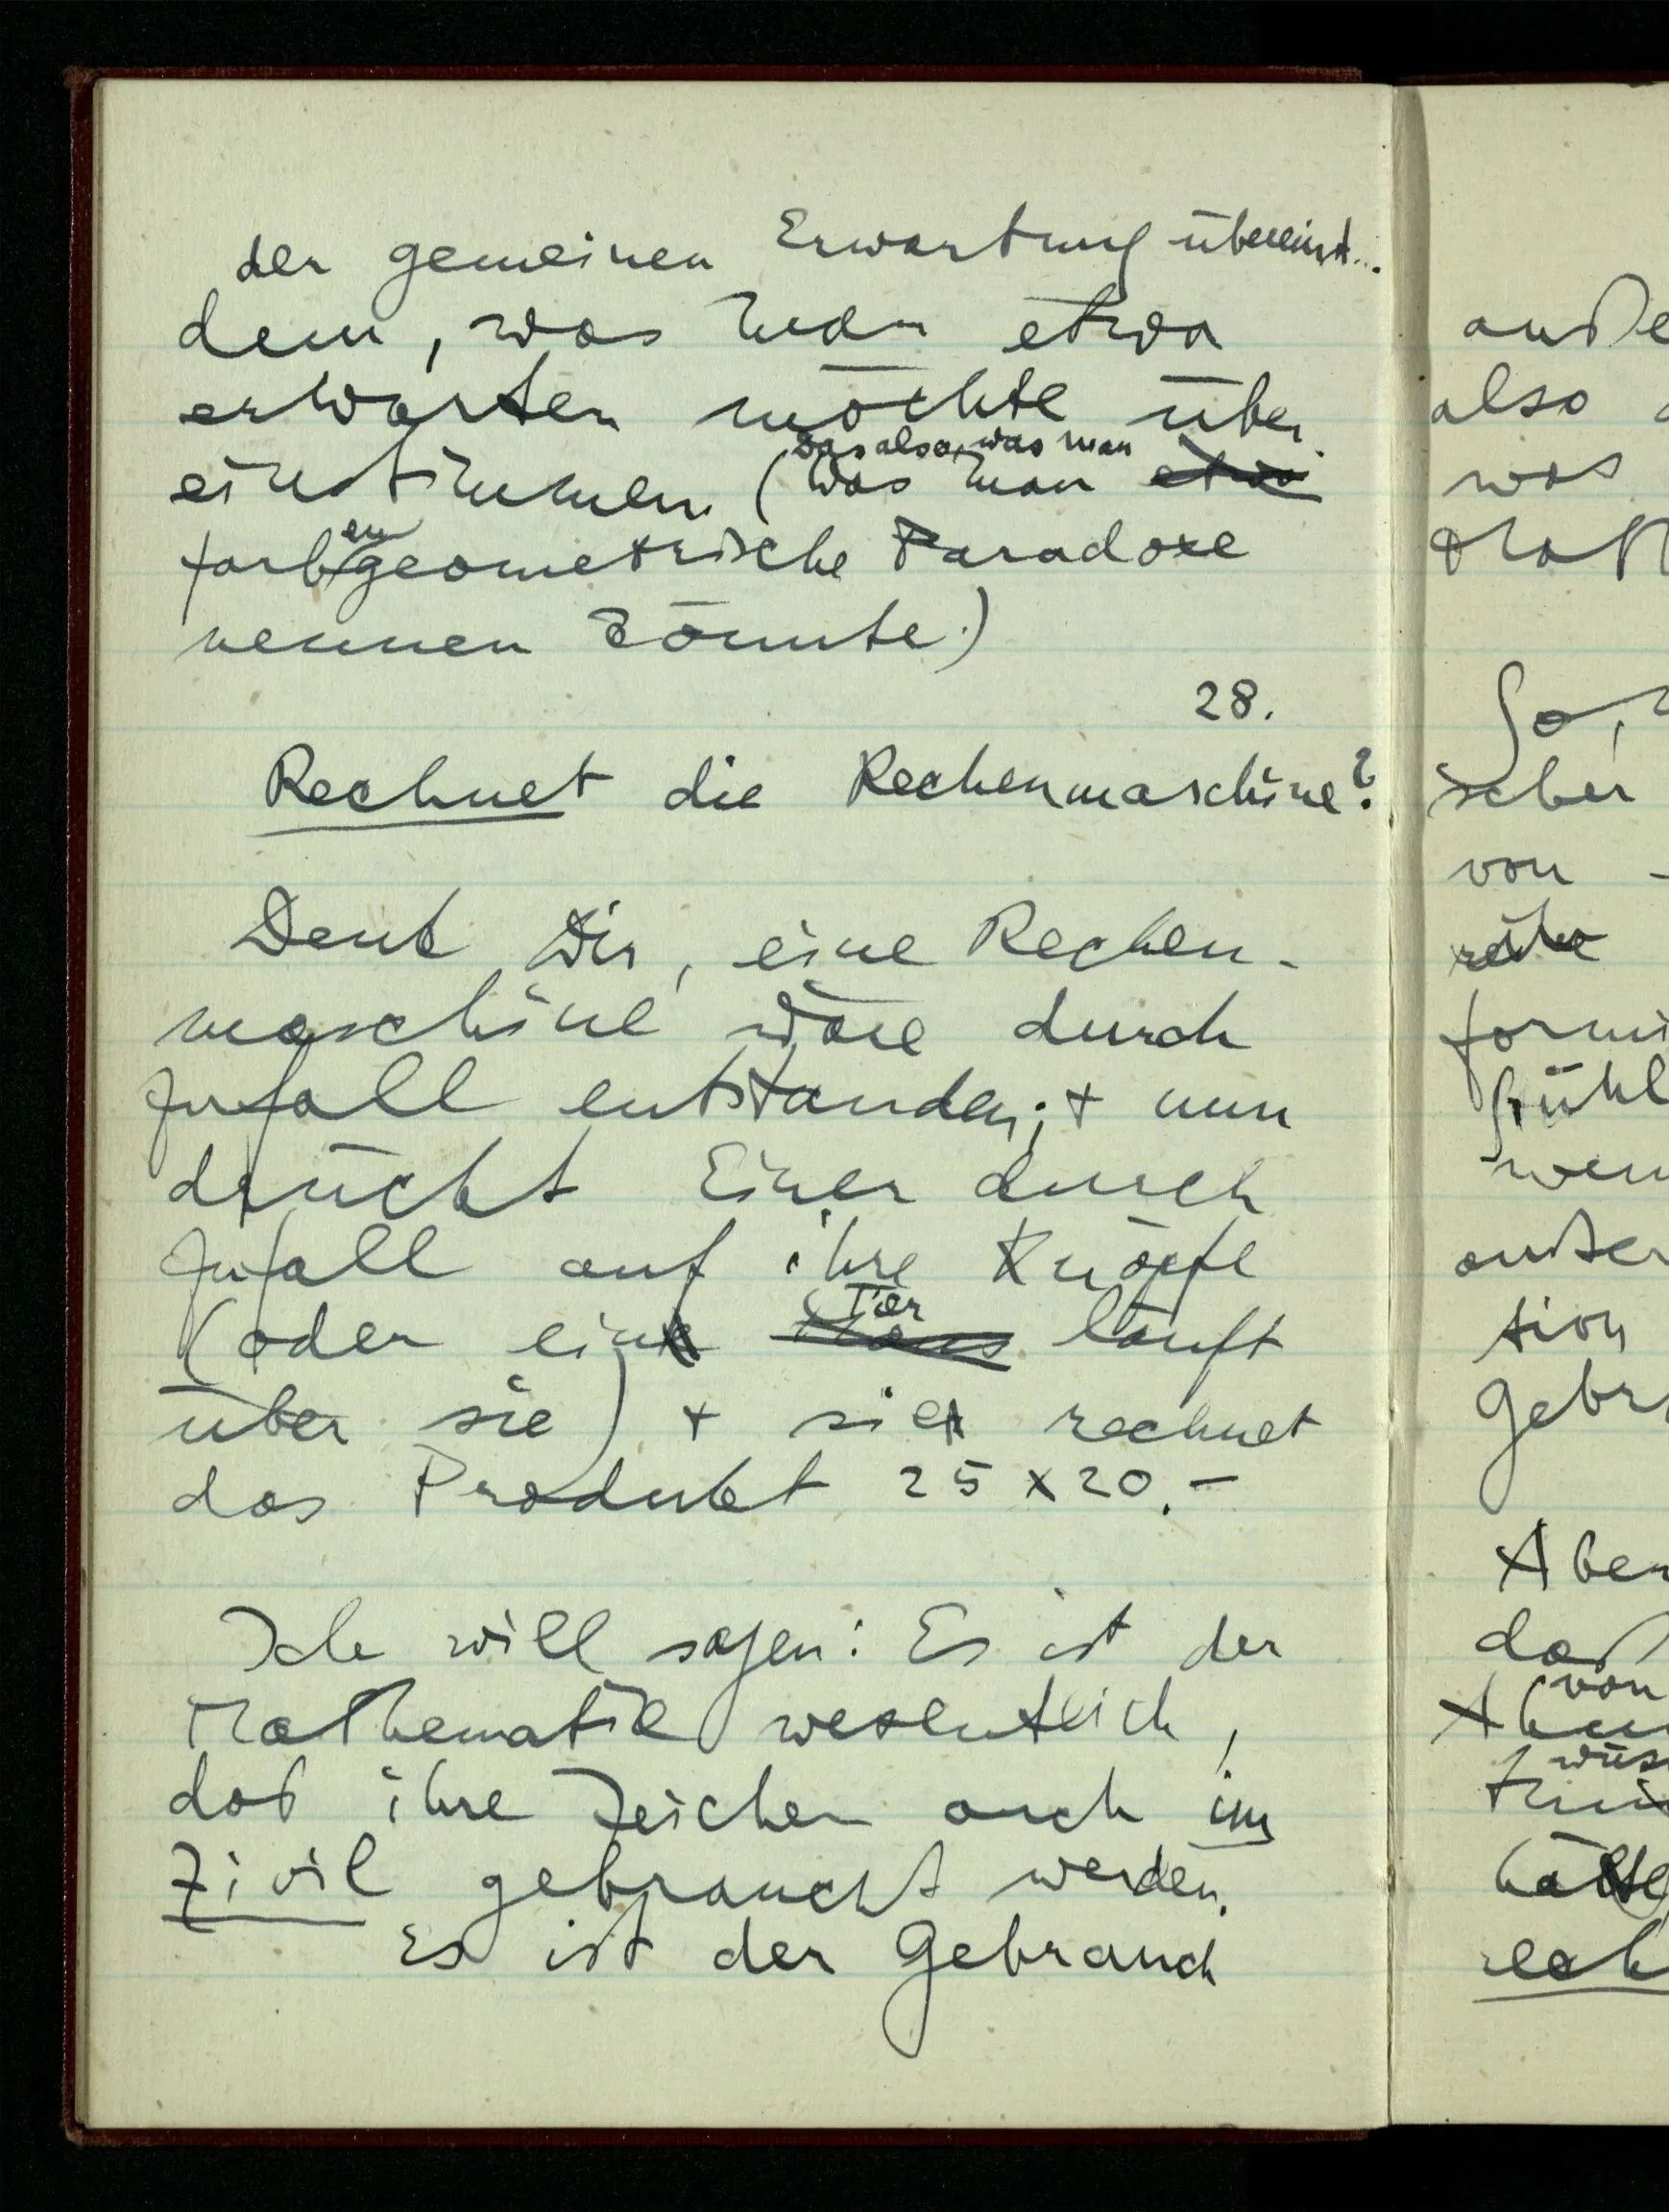 der gemeinen Erwartung übereinst...
dem, was man etwa
erwarten möchte über-
einstimmen. (Was man etwa
das also, was man
farbengeometrische Paradoxe
nennen könnte.)
28.
Rechnet die Rechenmaschine?
Denk Dir, eine Rechen-
maschine wäre durch
Zufall entstanden; + nun
drückt Einer durch
Zufall auf ihre Knöpfe
(oder ein Tier läuft
über sie) + sie rechnet
das Produkt 25 x 20. –
Ich will sagen: Es ist der
Mathematik wesentlich,
daß ihre Zeichen auch im
Zivil gebraucht werden.
Es ist der Gebrauch
auße
also
was
So,
ischer
von
formi
wenn
außer
tion
gebr
Aber
daß
von